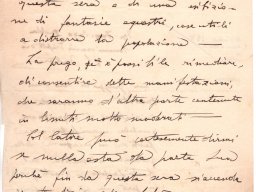 questa sera o di una esibizio-
ne di fantasie agresti, cose utili
a distrarre la popolazione —
La prego, se è possibile rimediare,
di consentire dette manifestazioni,
che saranno d'altra parte contenute
in limiti molto moderati —
Lei potrà cortesemente dirmi
se nulla osta da parte Sua
perchè fin da questa sera si accenda